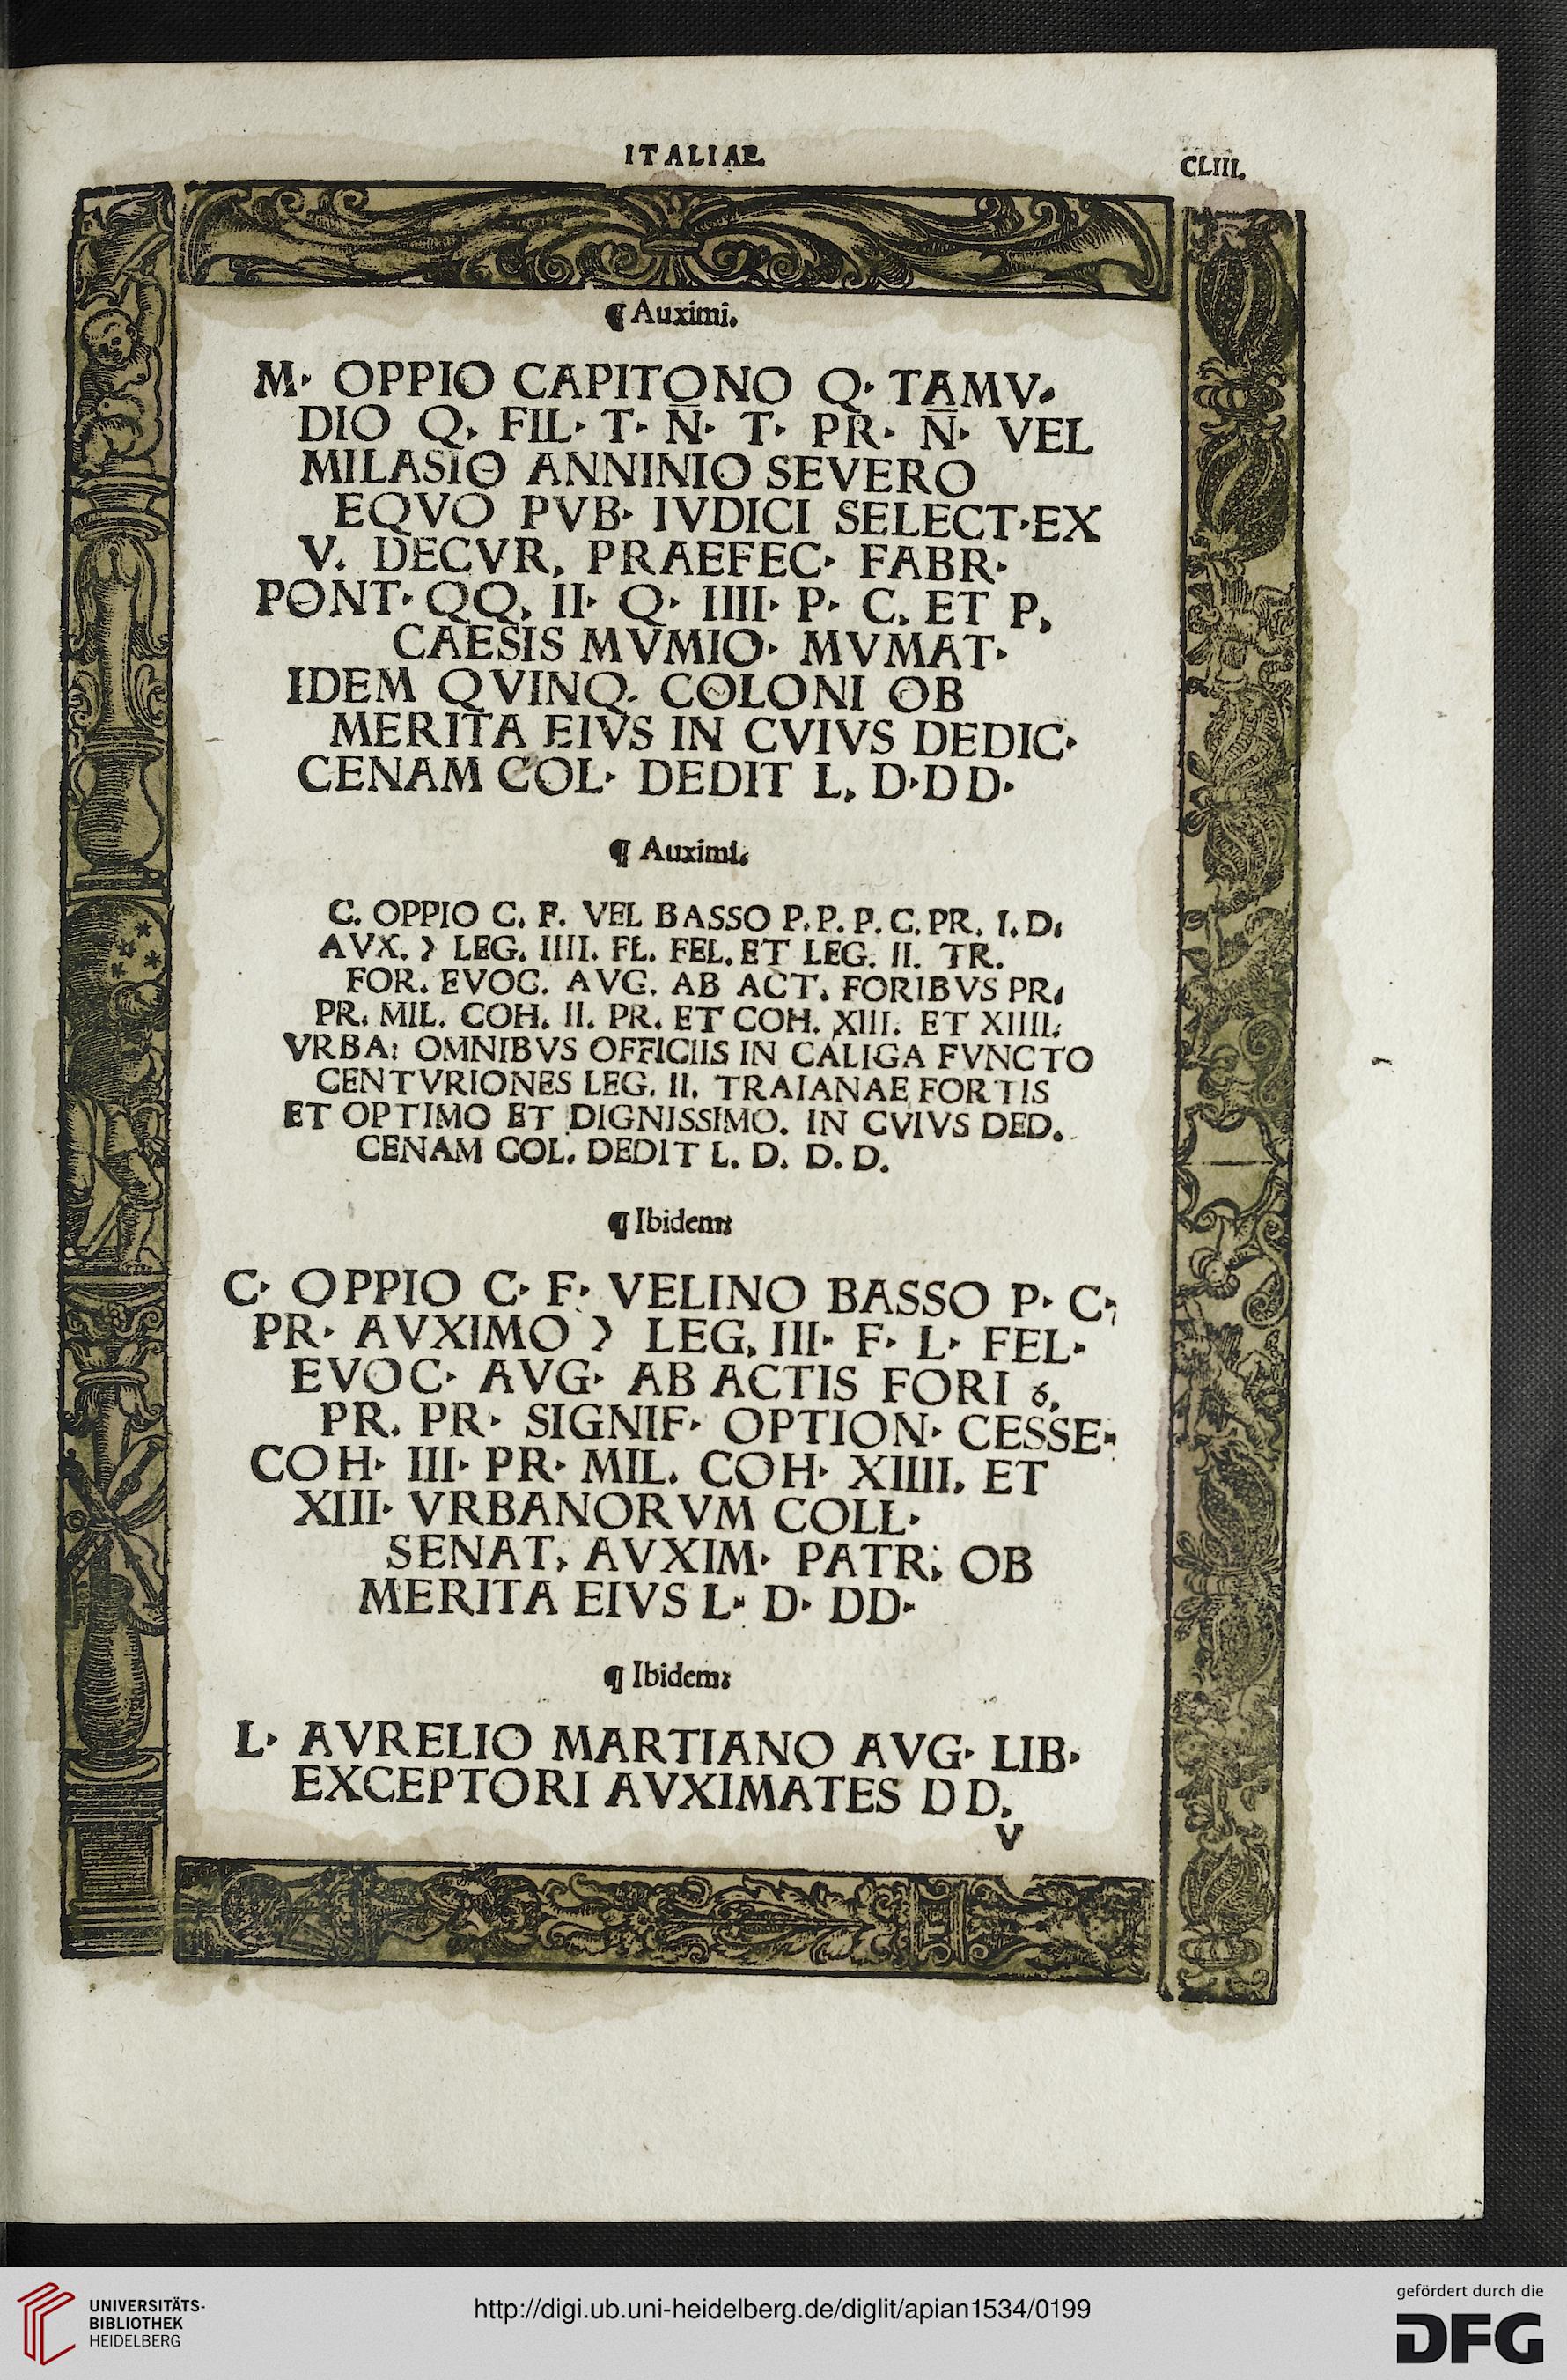 ITALIAE.
CLIII.
¶ Auximi.
M· OPPIO CAPITONO Q· TAMV⸗
DIO Q, FIL· T· N̄· T· PR· N̄· VEL
MILASIO ANNINIO SEVERO
EQVO PVB· IVDICI SELECT·EX
V. DECVR, PRAEFEC· FABR·
PONT· QQ, II· Q· IIII· P· C. ET P,
CAESIS MVMIO· MVMAT·
IDEM QVINQ. COLONI OB
MERITA EIVS IN CVIVS DEDIC·
CENAM COL· DEDIT L, D·D D·
¶ Auximi.
C. OPPIO C. F. VEL BASSO P. P. P. C. PR. I. D.
AVX. Ɔ LEG. IIII. FL. FEL. ET LEG. II. TR.
FOR. EVOC. AVG. AB ACT. FORIBVS PR.
PR. MIL. COH. II. PR. ET COH. XIII. ET XIIII.
VRBA: OMNIBVS OFFICIIS IN CALIGA FVNCTO
CENTVRIONES LEG. II. TRAIANAE FORTIS
ET OPTIMO ET DIGNISSIMO. IN CVIVS DED.
CENAM COL. DEDIT L. D. D. D.
¶ Ibidem:
C· OPPIO C· F· VELINO BASSO P· C·
PR· AVXIMO Ɔ LEG, III· F· L· FEL·
EVOC· AVG· AB ACTIS FORI 6,
PR. PR· SIGNIF· OPTION· CESSE·
COH· III· PR· MIL. COH· XIIII, ET
XIII· VRBANORVM COLL·
SENAT, AVXIM· PATR; OB
MERITA EIVS L· D· DD·
¶ Ibidem:
L· AVRELIO MARTIANO AVG· LIB·
EXCEPTORI AVXIMATES D D,
V
UNIVERSITÄTS-
BIBLIOTHEK
HEIDELBERG
http://digi.ub.uni-heidelberg.de/diglit/apian1534/0199
gefördert durch die
DFG